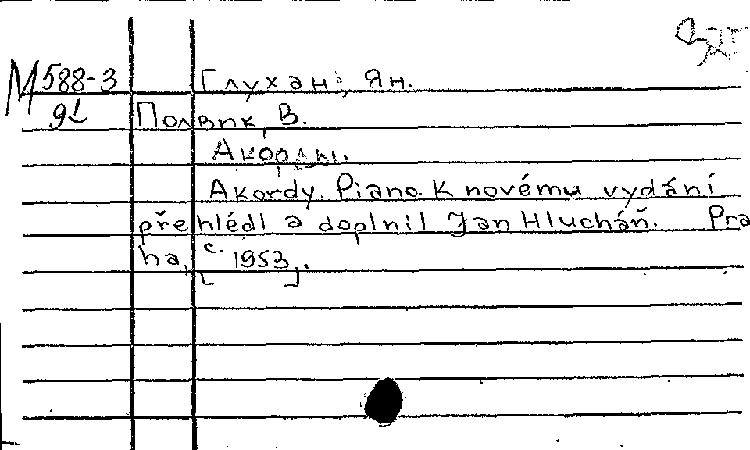 М 588-3 Глухань, Ян.
91 Полвик, В.
Акорды.
Akordy. Piano. K novému vydání
přehlédl a doplnil Jan Hlucháň. Pra
ha, [c. 1953].